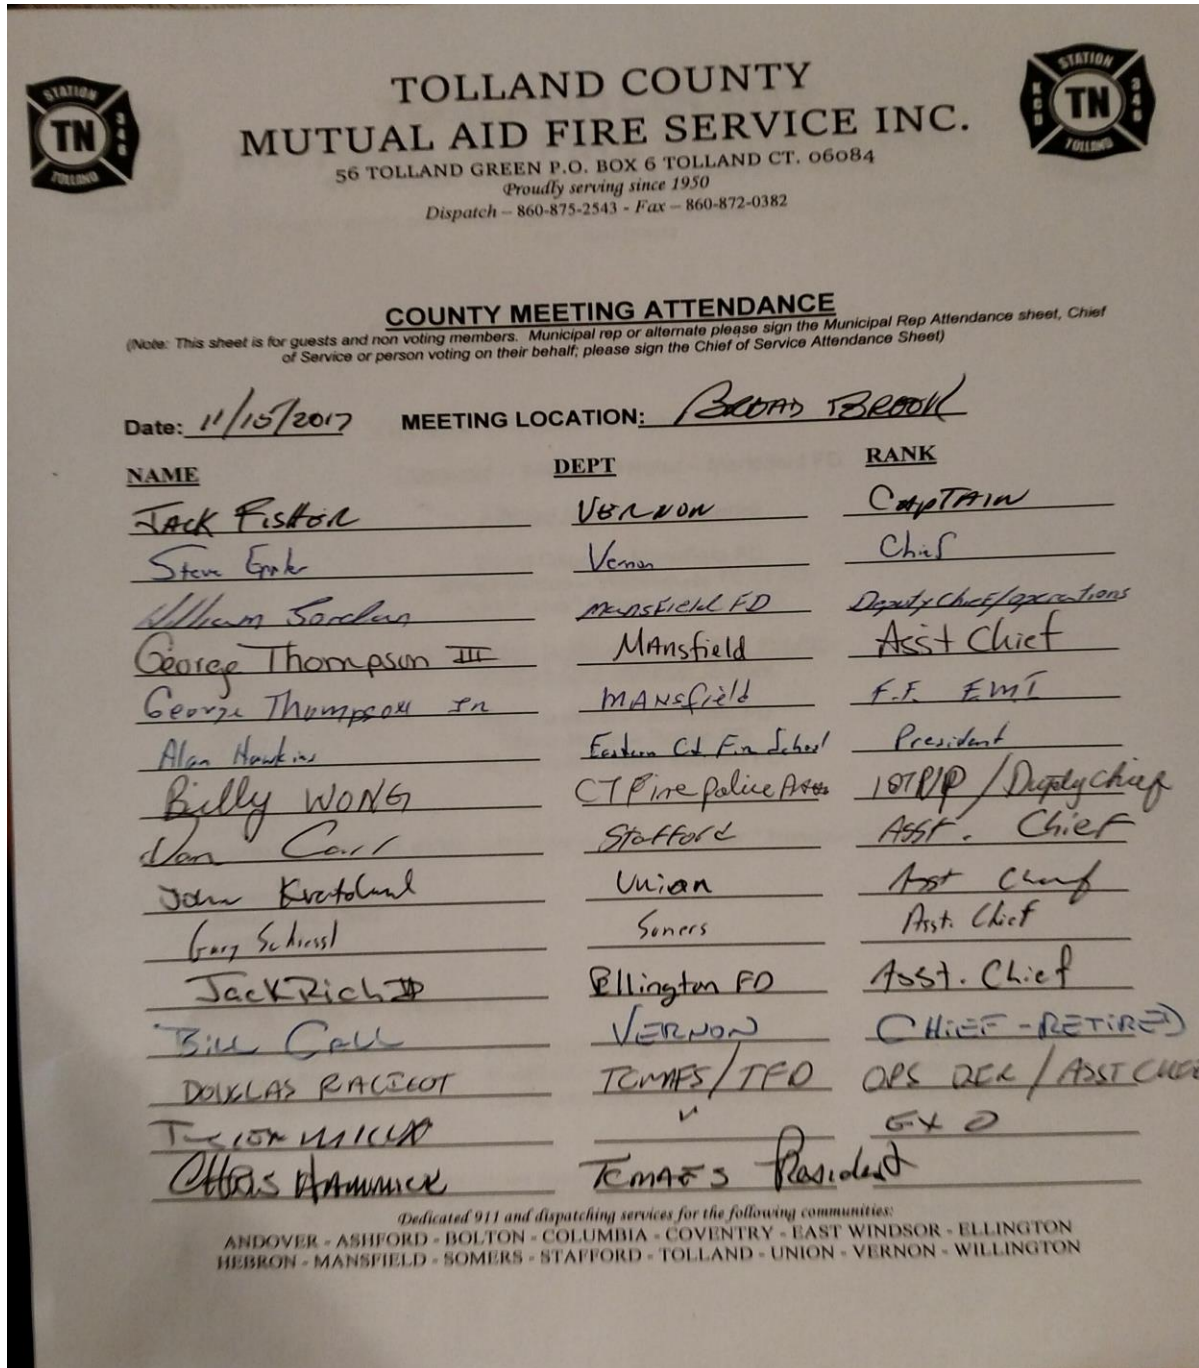 STATION 340 TN TOLLAND
TOLLAND COUNTY
MUTUAL AID FIRE SERVICE INC.
56 TOLLAND GREEN P.O. BOX 6 TOLLAND CT. 06084
Proudly serving since 1950
Dispatch – 860-875-2543 - Fax – 860-872-0382
STATION 340 TN TOLLAND
COUNTY MEETING ATTENDANCE
(Note: This sheet is for guests and non voting members. Municipal rep or alternate please sign the Municipal Rep Attendance sheet, Chief
of Service or person voting on their behalf; please sign the Chief of Service Attendance Sheet)
Date: 11/15/2017 MEETING LOCATION: BROAD BROOK
NAME DEPT RANK
JACK FISHER VERNON CAPTAIN
Steve Vernon Chief
William Jordan Mansfield FD Deputy Chief/operations
George Thompson III MAnsfield Asst Chief
George Thompson Jr MANsfield F.F. EMT
Alan Hawkins Eastern Ct. Fire School President
Billy WONG CT Fire Police Assn 1ST P/P / Deputy Chief
Don Carr Stafford Asst. Chief
John Union Asst Chief
Gary Schiessl Somers Asst. Chief
Jack Rich II Ellington FD Asst. Chief
Bill Call VERNON CHIEF - RETIRED
DOUGLAS RACICOT TCMAFS / TFD OPS / ASST CHIEF
EX O
CHRIS HAMMICK TCMAFS President
Dedicated 911 and dispatching services for the following communities:
ANDOVER - ASHFORD - BOLTON - COLUMBIA - COVENTRY - EAST WINDSOR - ELLINGTON
HEBRON - MANSFIELD - SOMERS - STAFFORD - TOLLAND - UNION - VERNON - WILLINGTON